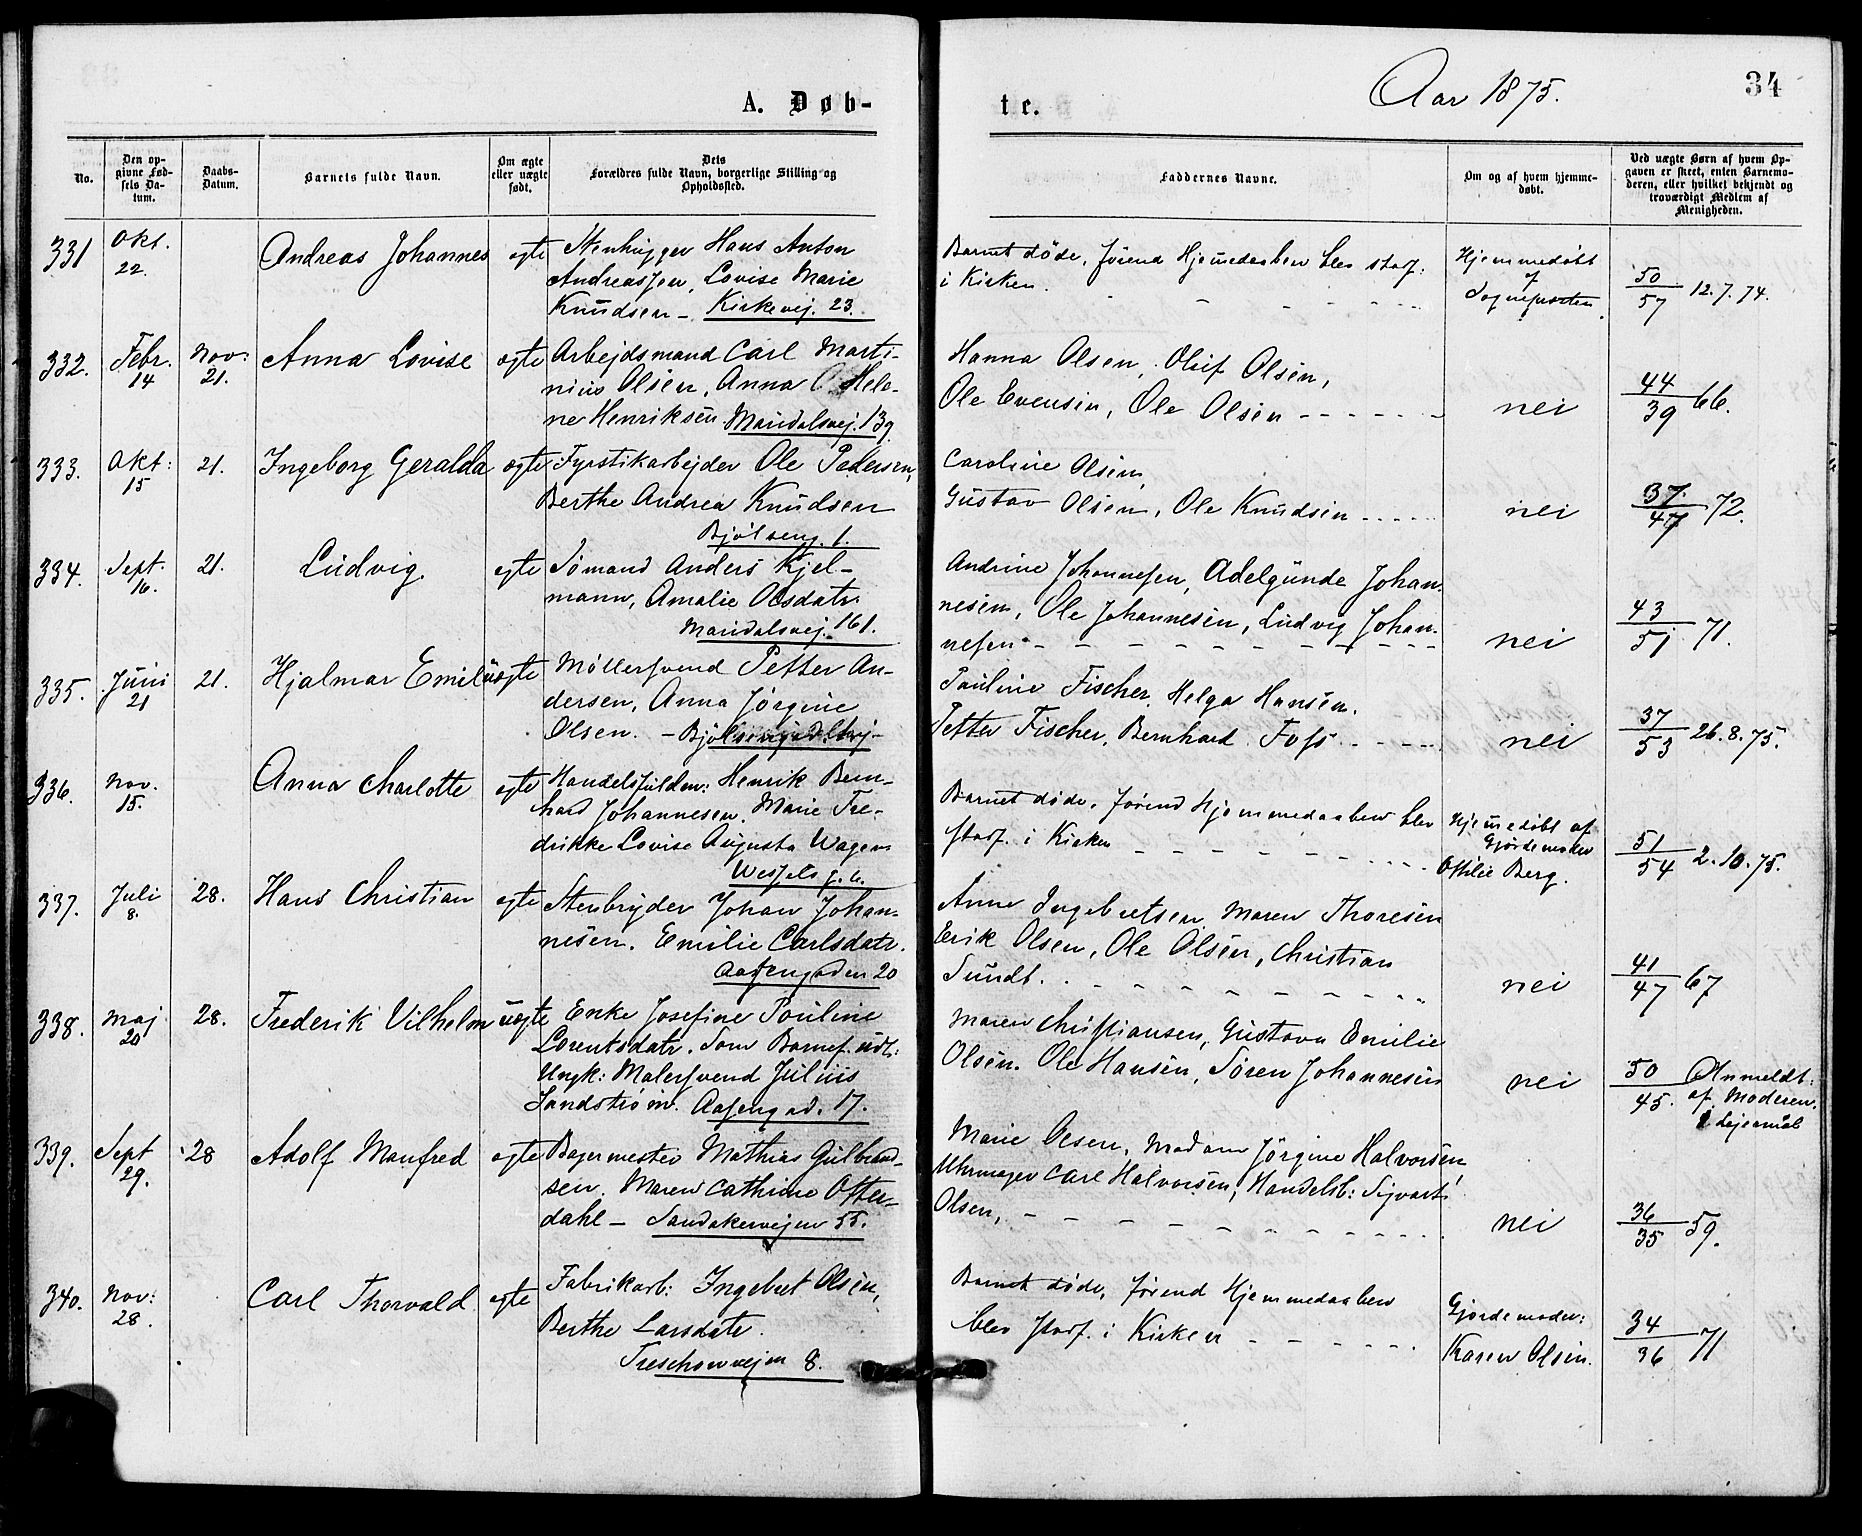 A. Døb-
te.
Aar 1875.
34
No.
Den op-
givne Fød-
sels Da-
tum.
Daabs-
Datum.
Barnets fulde Navn.
Om ægte
eller uægte
født.
Dets
Forældres fulde Navn, borgerlige Stilling og
Opholdssted.
Faddernes Navne.
Om og af hvem hjemme-
døbt.
Ved uægte Børn af hvem Op-
gaven er skeet, enten Barnemo-
deren, eller hvilket bekjendt og
troværdigt Medlem af
Menigheden.
331
Okt.
22.
Andreas Johannes
egte
Stenhugger Hans Anton
Andreassen, Lovise Marie
Knudsen - Kirkevej. 23.
Barnet døde, førend Hjemedaaben blev stadf.
i Kirken.
Hjemmedøbt
af
Sognepresten
50
57 12.7.74.
332.
Febr.
14
Nov.
21.
Anna Lovise
egte
Arbejdsmand Carl Marti-
nius Olsen, Anna C Hele-
ne Henriksen Maridalsvej. 139.
Hanna Olsen, Oluf Olsen,
Ole Evensen, Ole Olsen
nei
44
39 66.
333.
Okt:
15
21.
Ingeborg Geralda
egte
Fyrstikarbejder Ole Pedersen,
Berthe Andrea Knudsen
Bjølseng. 1.
Caroline Olsen,
Gustav Olsen, Ole Knudsen
nei
37.
47 72.
334.
Sept.
16.
21.
Ludvig
egte
Sømand Anders Kjel-
mann, Amalie Olsdatr.
Maridalsvej. 161.
Andrine Johannesen, Adelgunde Johan-
nesen, Ole Johannesen, Ludvig Johan-
nesen
nei
43
51 71.
335.
Juni
21
21.
Hjalmar Emil
uegte
Møllersvend Petter An-
dersen, Anna Jørgine
Olsen. -
Pauline Fischer, Helga Hansen.
Petter Fischer, Bernhard Foss
nei
37
53 26.8.75.
336.
Nov.
15.
Anna Charlotte
egte
Handelsfuldm: Henrik Bern-
hard Johannesen. Marie Fre-
drikke Lovise Augusta Wagen
Wessels g. 6.
Barnet døde, førend Hjemmedaaben blev
stadf. i Kirken
Hjemedøbt af
Gjordemoder
Ottilie Berg.
51
54 2.10.75.
337.
Juli
8.
28.
Hans Christian
egte
Stenbryder Johan Johan-
nesen. Emilie Carlsdatr.
Aasengaden 20
Anne Ingebretsen, Maren Thoresen
Erik Olsen, Ole Olsen, Christian
Sundt.
nei
41
47 67
338.
Maj
20
28.
Frederik Vilhelm
uegte
Enke Josefine Pauline
Lorentsdatr. Som Barnef. udl:
Ungk: Malersvend Julius
Sandstrøm. Aasengad. 17.
Maren Christiansen, Gustava Emilie
Olsen. Ole Hansen, Søren Johannesen
nei
50 Anmeldt
45. af Moderen.
Lejermaal
339.
Sept
29.
28
Adolf Manfred
egte
Bagermester Mathias Gulbrand-
sen. Maren Cathrine Otter-
dahl - Sandakervejen 55.
Marie Olsen, Madam Jørgine Halvorsen
Uhrmager Carl Halvorsen, Handelsb: Sigvart
Olsen,
nei
36
35 59.
340.
Nov:
28.
Carl Thorvald
egte
Fabrikarb: Ingebret Olsen,
Berthe Larsdatr.
Treschowvejen 8.
Barnet døde, førend Hjemmedaaben
blev stadf. i Kirken
Gjordemoder:
Karen Olsen.
34
36 71